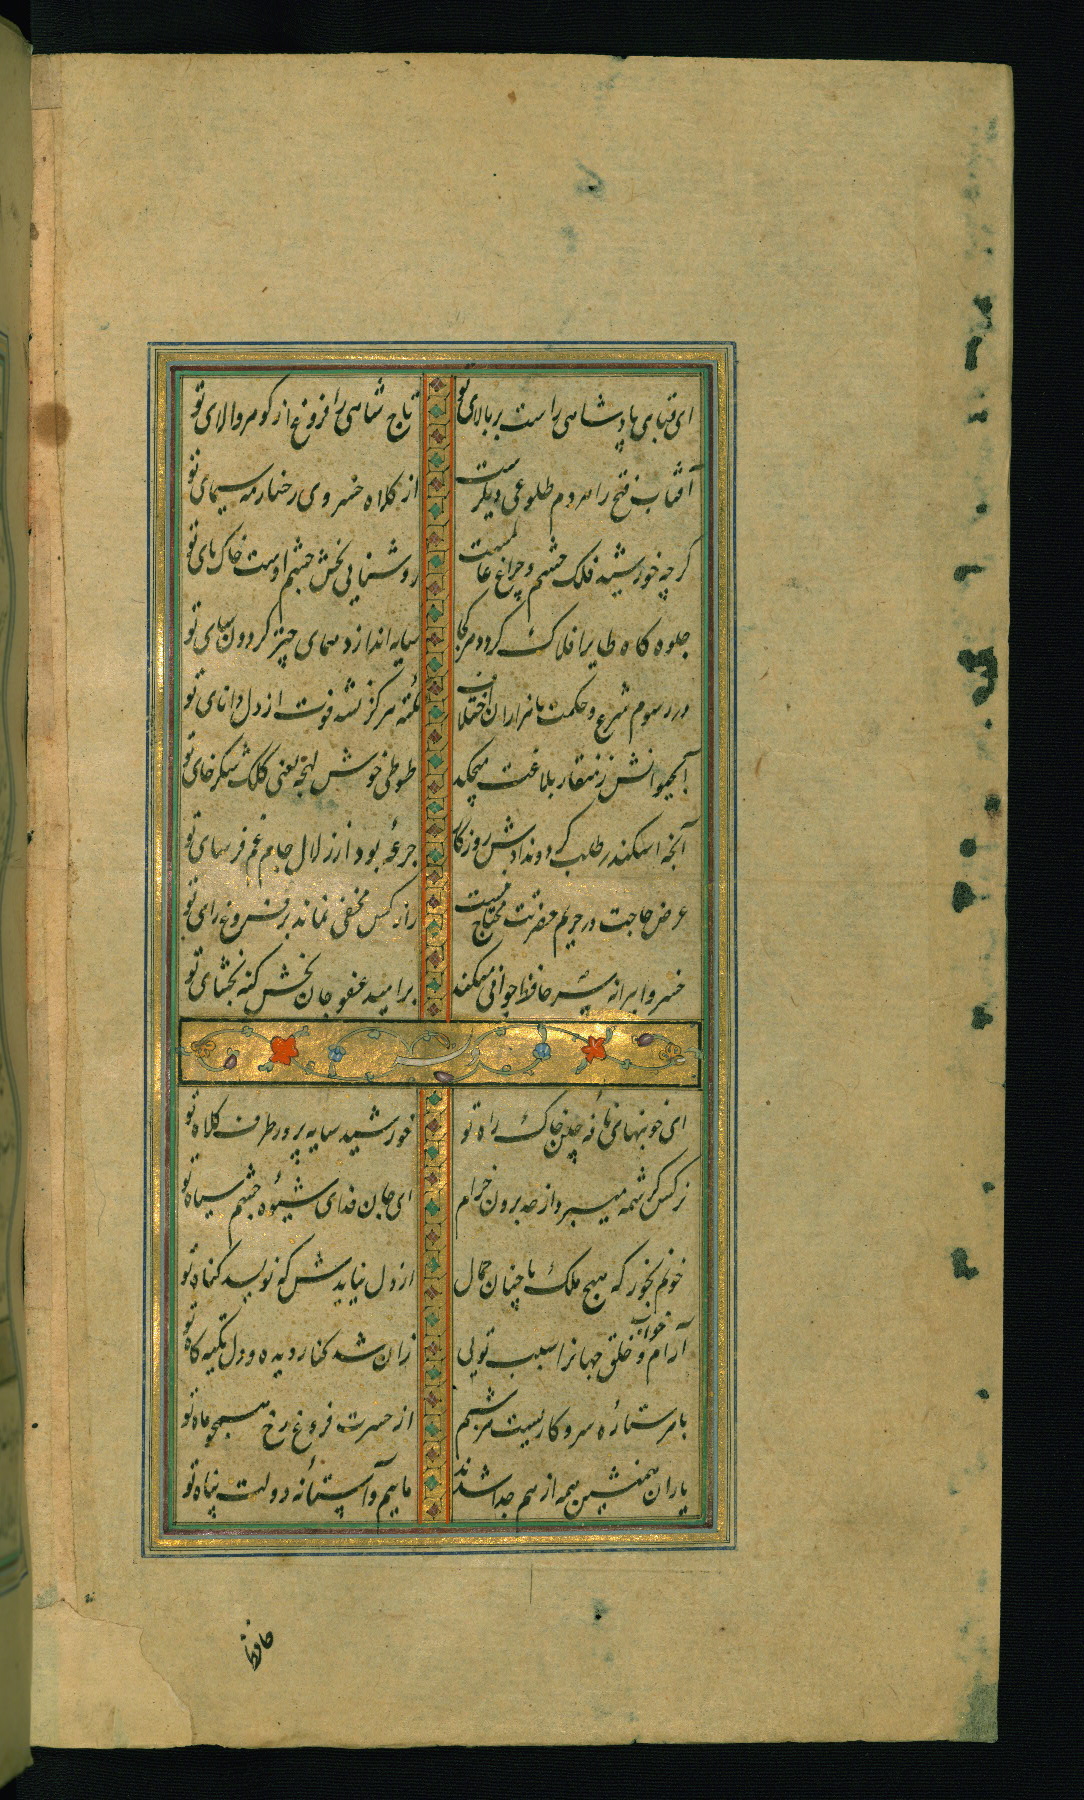 ای قبای پادشاهی راست بر بالای تو تاج شاهی را فروغ از گوهر والای تو
آفتاب فتح را هر دم طلوعی دیگرست از کلاه خسروی رخسار مه سیمای تو
گرچه خورشید فلک چشم و چراغ عالمست روشنایی بخش چشم اوست خاک پای تو
جلوه گاه طایر افلاک گردد هر کجا سایه اندازد همای چتر گردون سای تو
در رسوم شرع و حکمت با هزاران اختلاف نکته هرگز نشد فوت از دل دانای تو
آب حیوانش ز منقار بلاغت میچکد طوطی خوش لهجه یعنی کلک شکرخای تو
آنچه اسکندر طلب کرد و ندادش روزگار جرعه بود از زلال جام غم فرسای تو
عرض حاجت در حریم حضرتت محتاج نیست راز کس مخفی نماند بر فروغ رای تو
خسروا پیرانه سر حافظ جوانی میکند بر امید عفو جان بخش گنه بخشای تو
وله
ای خونبهای نافه چین خاک راه تو خورشید سایه پرور طرف کلاه تو
نرگس کرشمه میبرد از حد برون خرام ای جان فدای شیوه چشم سیاه تو
خونم بخور که هیچ ملک با چنان جمال از دل نیایدش که نویسد گناه تو
آرام و خواب خلق جهانرا سبب تویی زان شد کنار دیده و دل تکیه گاه تو
با هر ستاره سر و کاریست هر شبم از حسرت فروغ رخ همچو ماه تو
یاران همنشین همه از هم جدا شدند ماییم و آستانه دولت پناه تو
حافظ